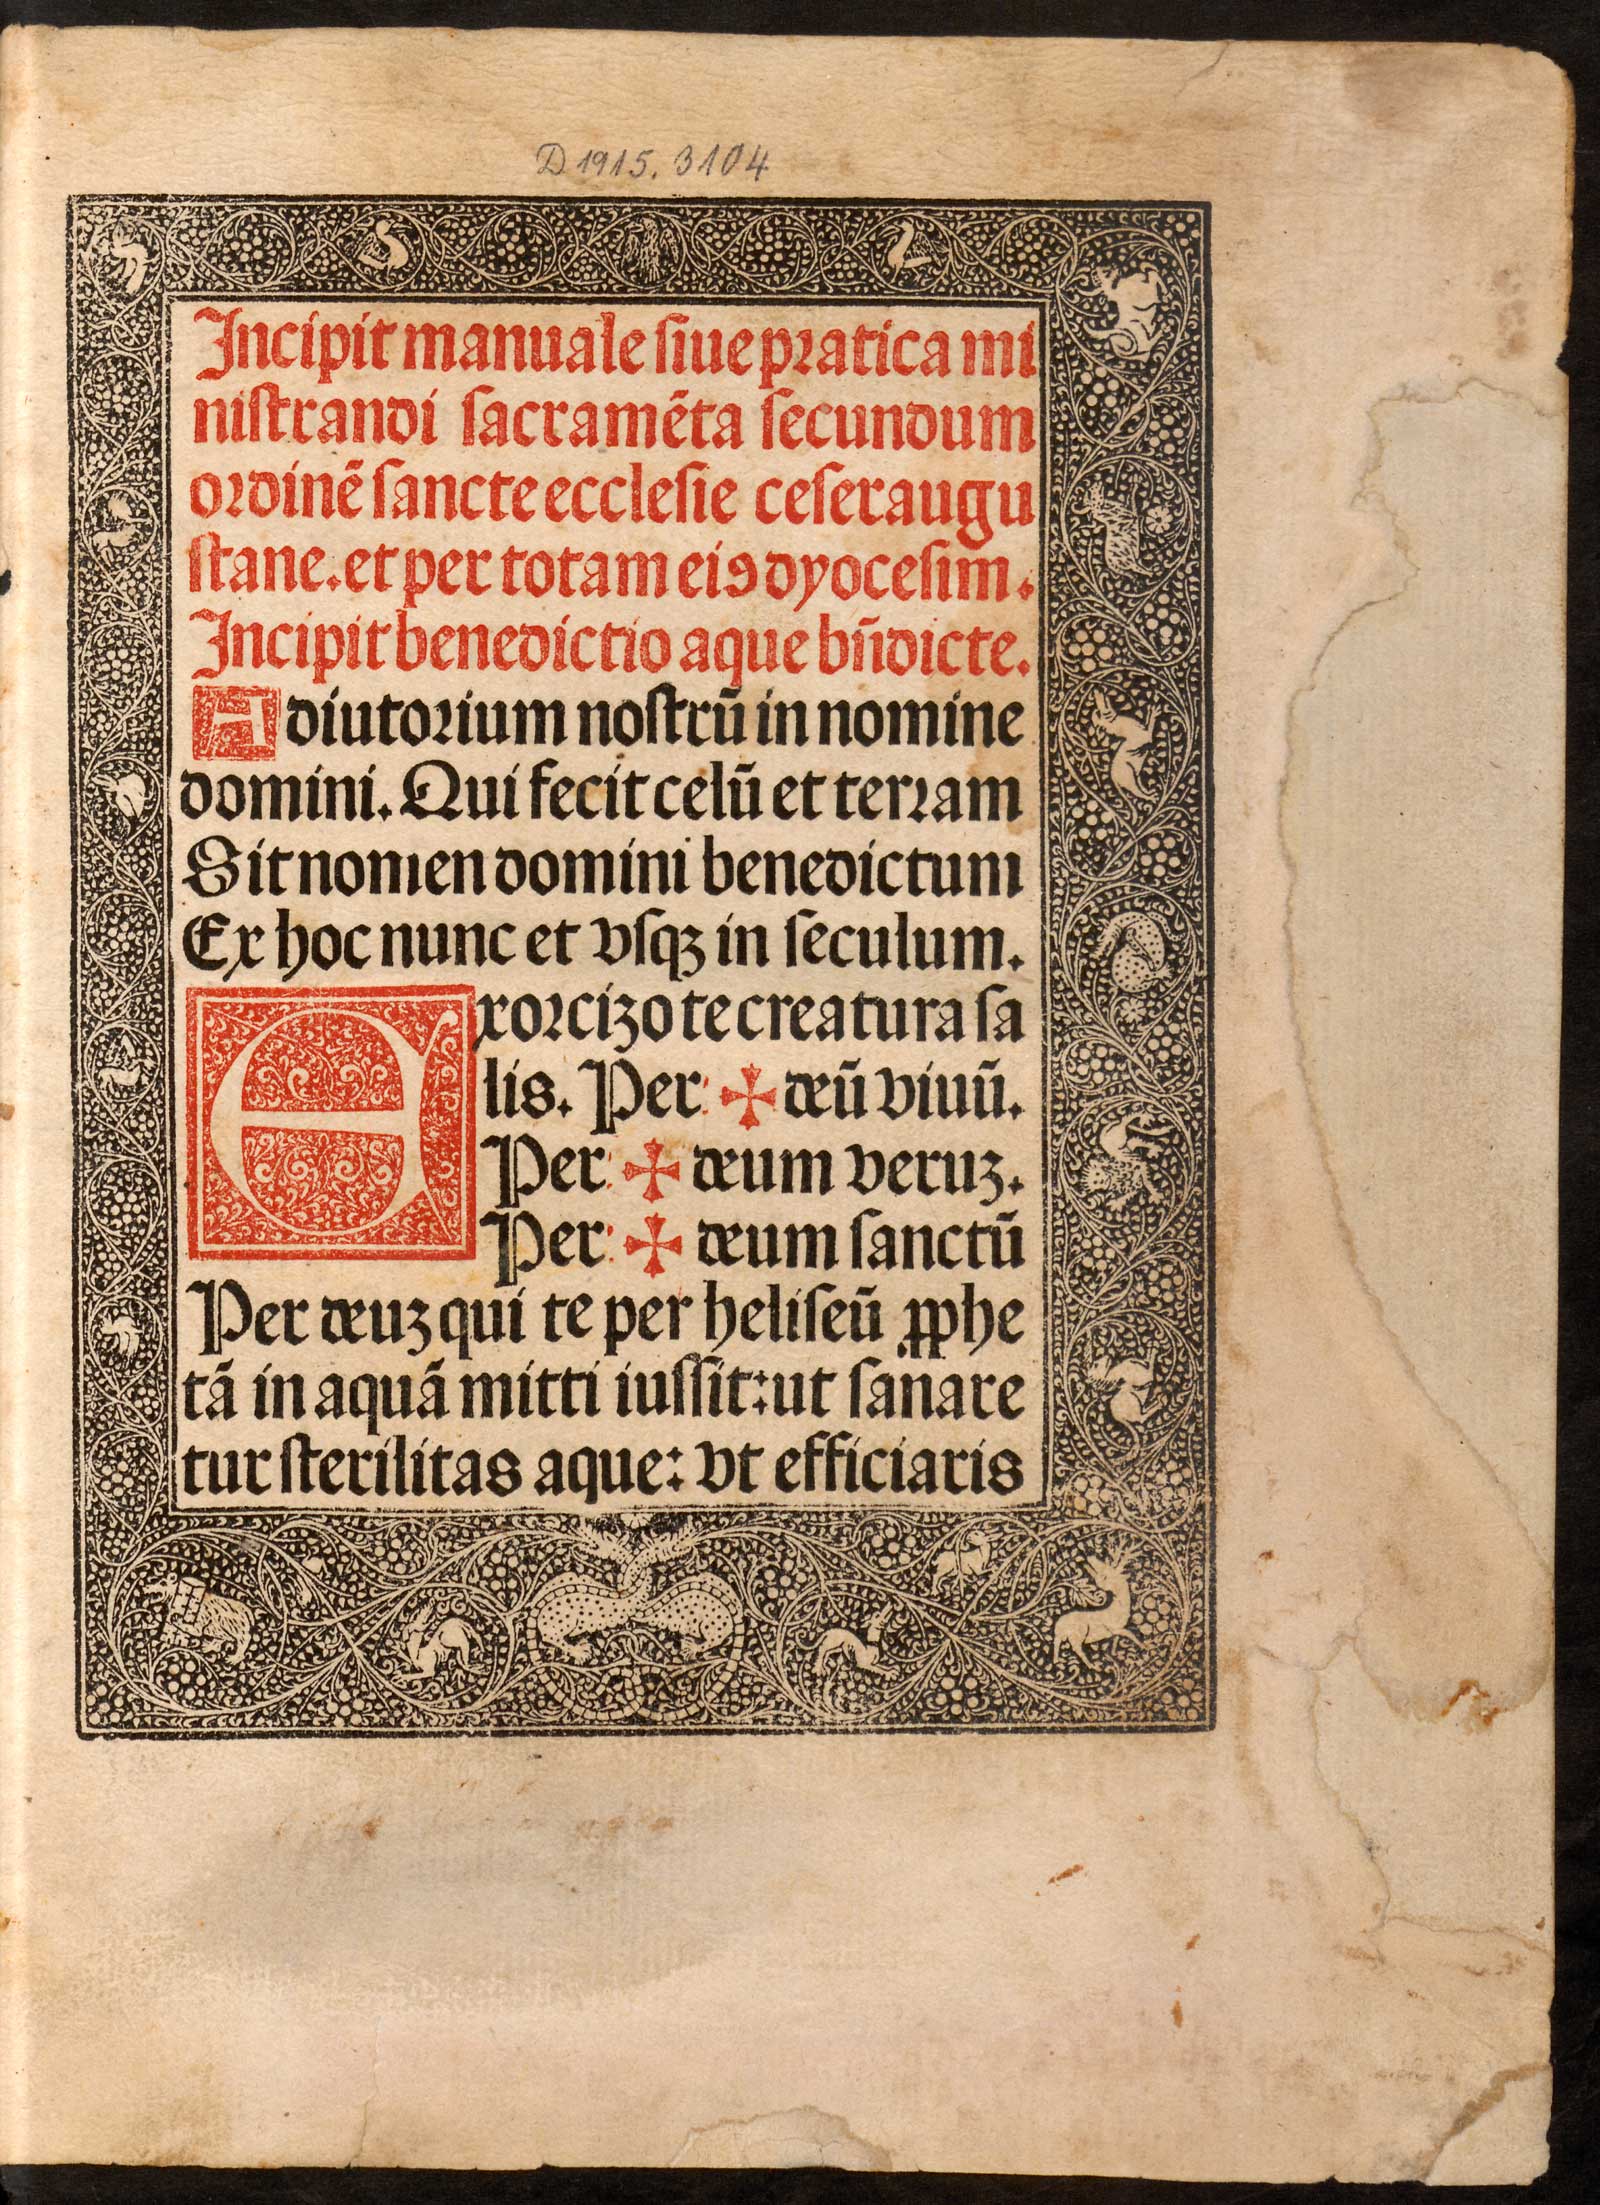 D 1915. 3104
Incipit manuale siue pratica mi
nistrandi sacramēta secundum
ordinē sancte ecclesie ceseraugu
stane. et per totam eiꝰ dyocesim.
Incipit benedictio aque bn̄dicte.
Adiutorium nostrū in nomine
domini. Qui fecit celū et terram
Sit nomen domini benedictum
Ex hoc nunc et vsqꝫ in seculum.
Exorcizo te creatura sa
lis. Per ✠ deū viuū.
Per ✠ deum veruꝫ.
Per ✠ deum sanctū
Per deuꝫ qui te per heliseū ꝓphe
tā in aquā mitti iussit: ut sanare
tur sterilitas aque: vt efficiaris